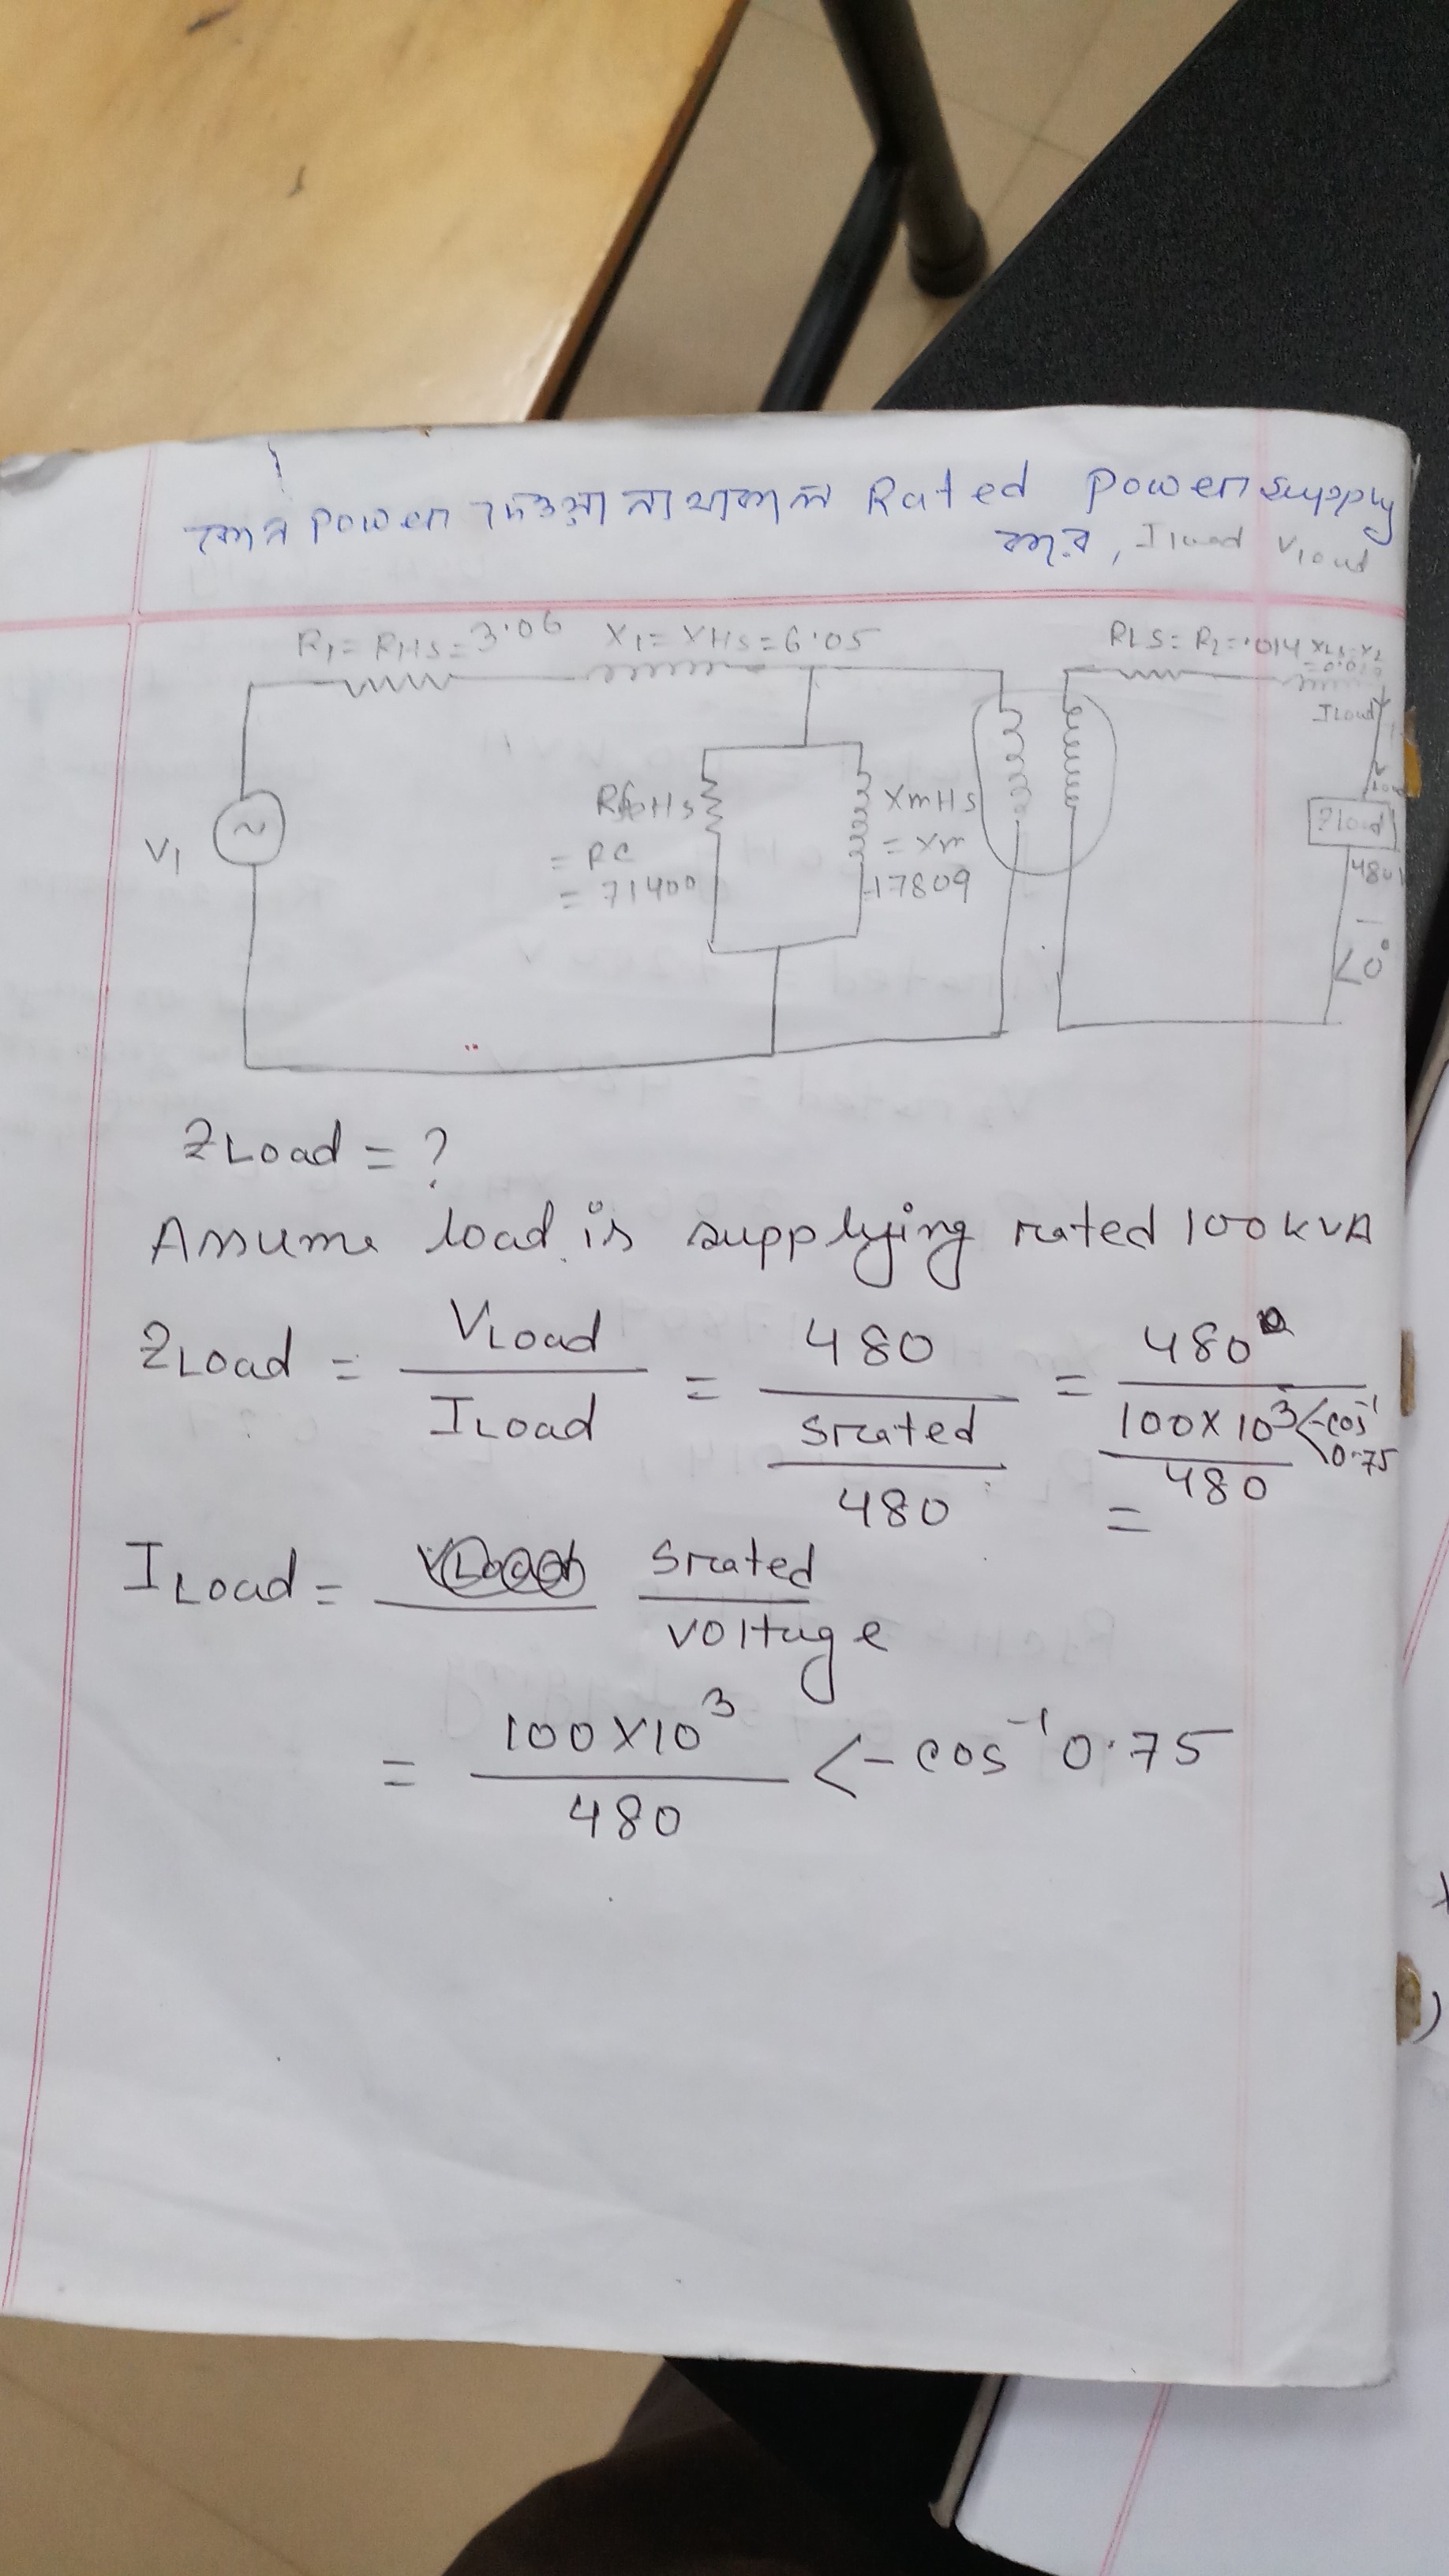 কোন power দেওয়া না থাকলে Rated power supply
করে, ILoad VLoad
R1 = RHS = 3.06 X1 = XHS = 6.05 RLS = R2 = .014 XLS = X2
ILoad
V1
~
RCHS
= RC
= 71400
XmHS
= Xm
= 17809
ZLoad
480
∠0°
ZLoad = ?
Assume load is supplying rated 100 kVA
ZLoad = VLoad / ILoad = 480 / (Srated / 480) = 480 / (100 × 10³ / 480 ∠-cos⁻¹ 0.75)
=
ILoad = Srated / voltage
= 100 × 10³ / 480 ∠-cos⁻¹ 0.75